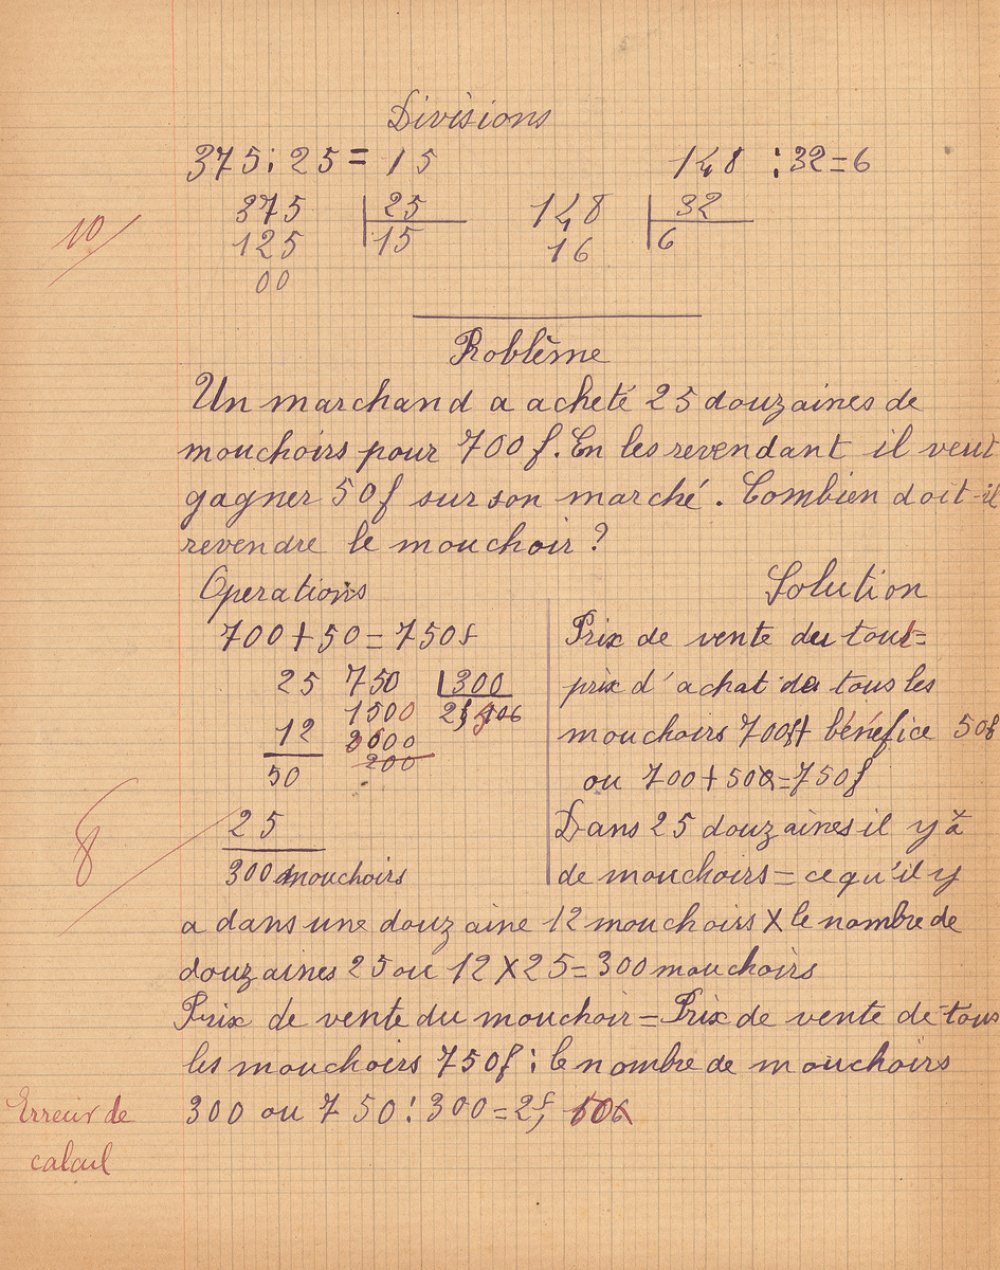 Divisions
375 : 25 = 15 148 : 32 = 6
375 25 148 32
10 125 15 16 6
00
Problème
Un marchand a acheté 25 douzaines de
mouchoirs pour 700 f. En les revendant il veut
gagner 50 f sur son marché. Combien doit-il
revendre le mouchoir ?
Operations
700 + 50 = 750 f
25 750 300
1500
12
200
50
25
8
300 mouchoirs
Solution
Prix de vente du tout =
prix d'achat de tous les
mouchoirs 700 f + bénéfice 50f
ou 700 + 50 = 750 f
Dans 25 douzaines il y a
de mouchoirs = ce qu'il y
a dans une douzaine 12 mouchoirs X le nombre de
douzaines 25 ou 12 X 25 = 300 mouchoirs
Prix de vente du mouchoir = Prix de vente de tous
les mouchoirs 750 f : le nombre de mouchoirs
300 ou 750 : 300 = 2f,
Erreur de
calcul